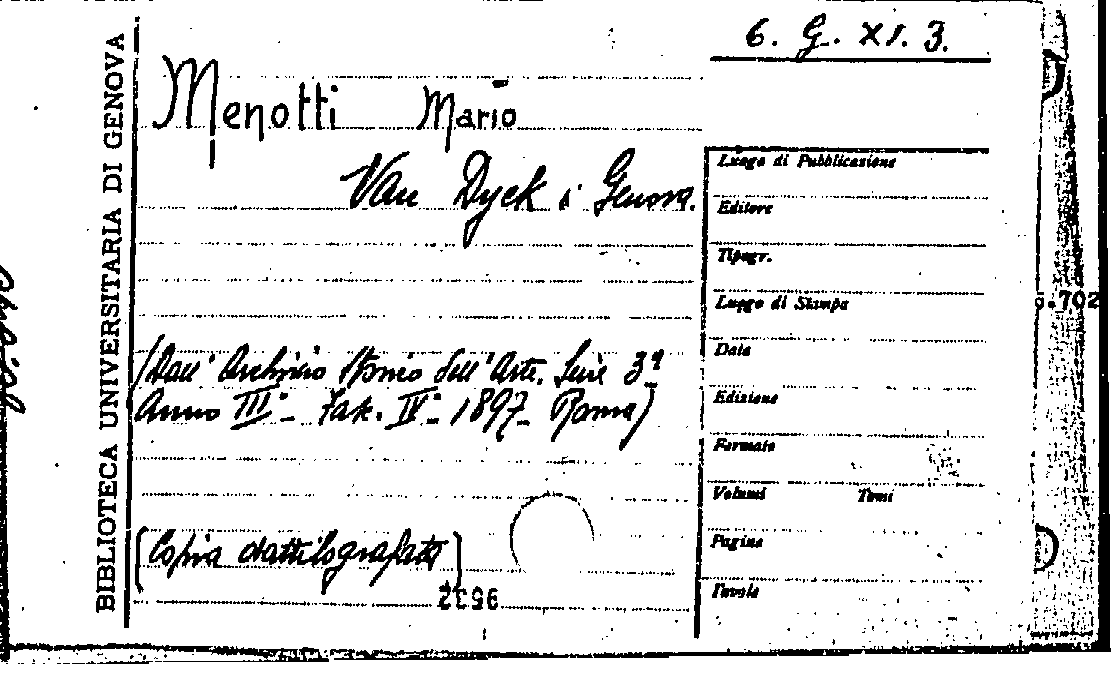 6. G. XI. 3.
BIBLIOTECA UNIVERSITARIA DI GENOVA
Menotti Mario
Van Dyck i Genova.
(Dall' Archivio Storico dell' Arte. Serie 3ª
Anno III- Fak. IV- 1897- Roma)
[Copia dattilografata]
Luogo di Pubblicazione
Editore
Tipogr.
Luogo di Stampa
Data
Edizione
Formato
Volumi Tomi
Pagine
Tavole
.702